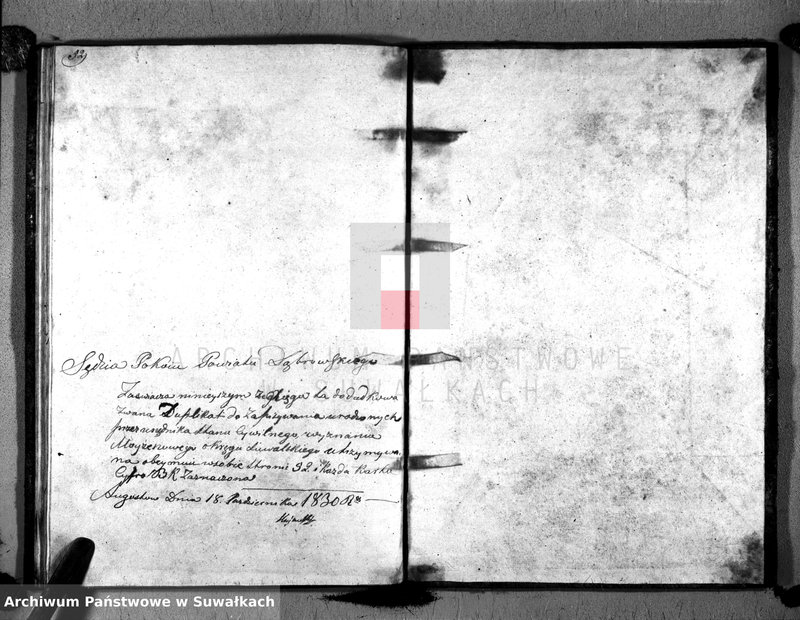 32
Sędzia Pokoiu Powiatu Dąbrowskiego
Zaświacza ninieyszym że Xięga ta dodatkowa
zwana Duplikat do Zapisywania urodzonych
przez urzędnika Stanu Cywilnego, wyznania
Moyżeszowego okręgu Suwalskiego utrzymywa
na obeymuie w sobie Stronic 32. i każda Karta
Cyfrą zaznaczona
Augustów Dnia 18. Października 1830 R
ARCHIWUM PAŃSTWOWE
W SUWAŁKACH
Archiwum Państwowe w Suwałkach